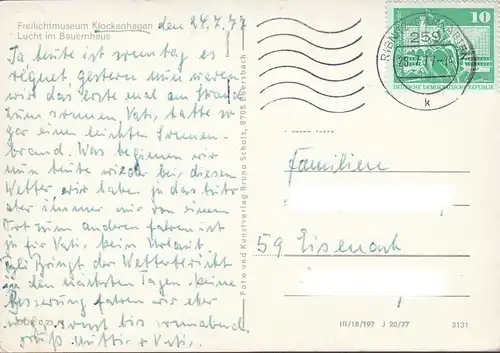 Freilichtmuseum Klockenhagen den 24.7.77
Lucht im Bauernhaus
Ja heute ist Sonntag es
regnet gestern nun waren
wir das erste mal am Strand
zum sonnen, Vati hatte so
gar einen leichten Sonnen-
brand. Was beginnen wir
nun heute wieder bei diesem
Wetter wir haben ja das Auto
aber immer nur von einem
Ort zum anderen fahren ist
ja für Vati kein Urlaub
Bringt der Wetterbericht
in den nächsten Tagen keine
Besserung fahren wir eher
sonst bis Sonnabend
Gruß Mutti & Vati.
Foto und Kunstverlag Bruno Scholz, 8705 Ebersbach
10
DEUTSCHE DEMOKRATISCHE REPUBLIK
259
k
Familien
59 Eisenach
III/18/197 J 20/77 3131